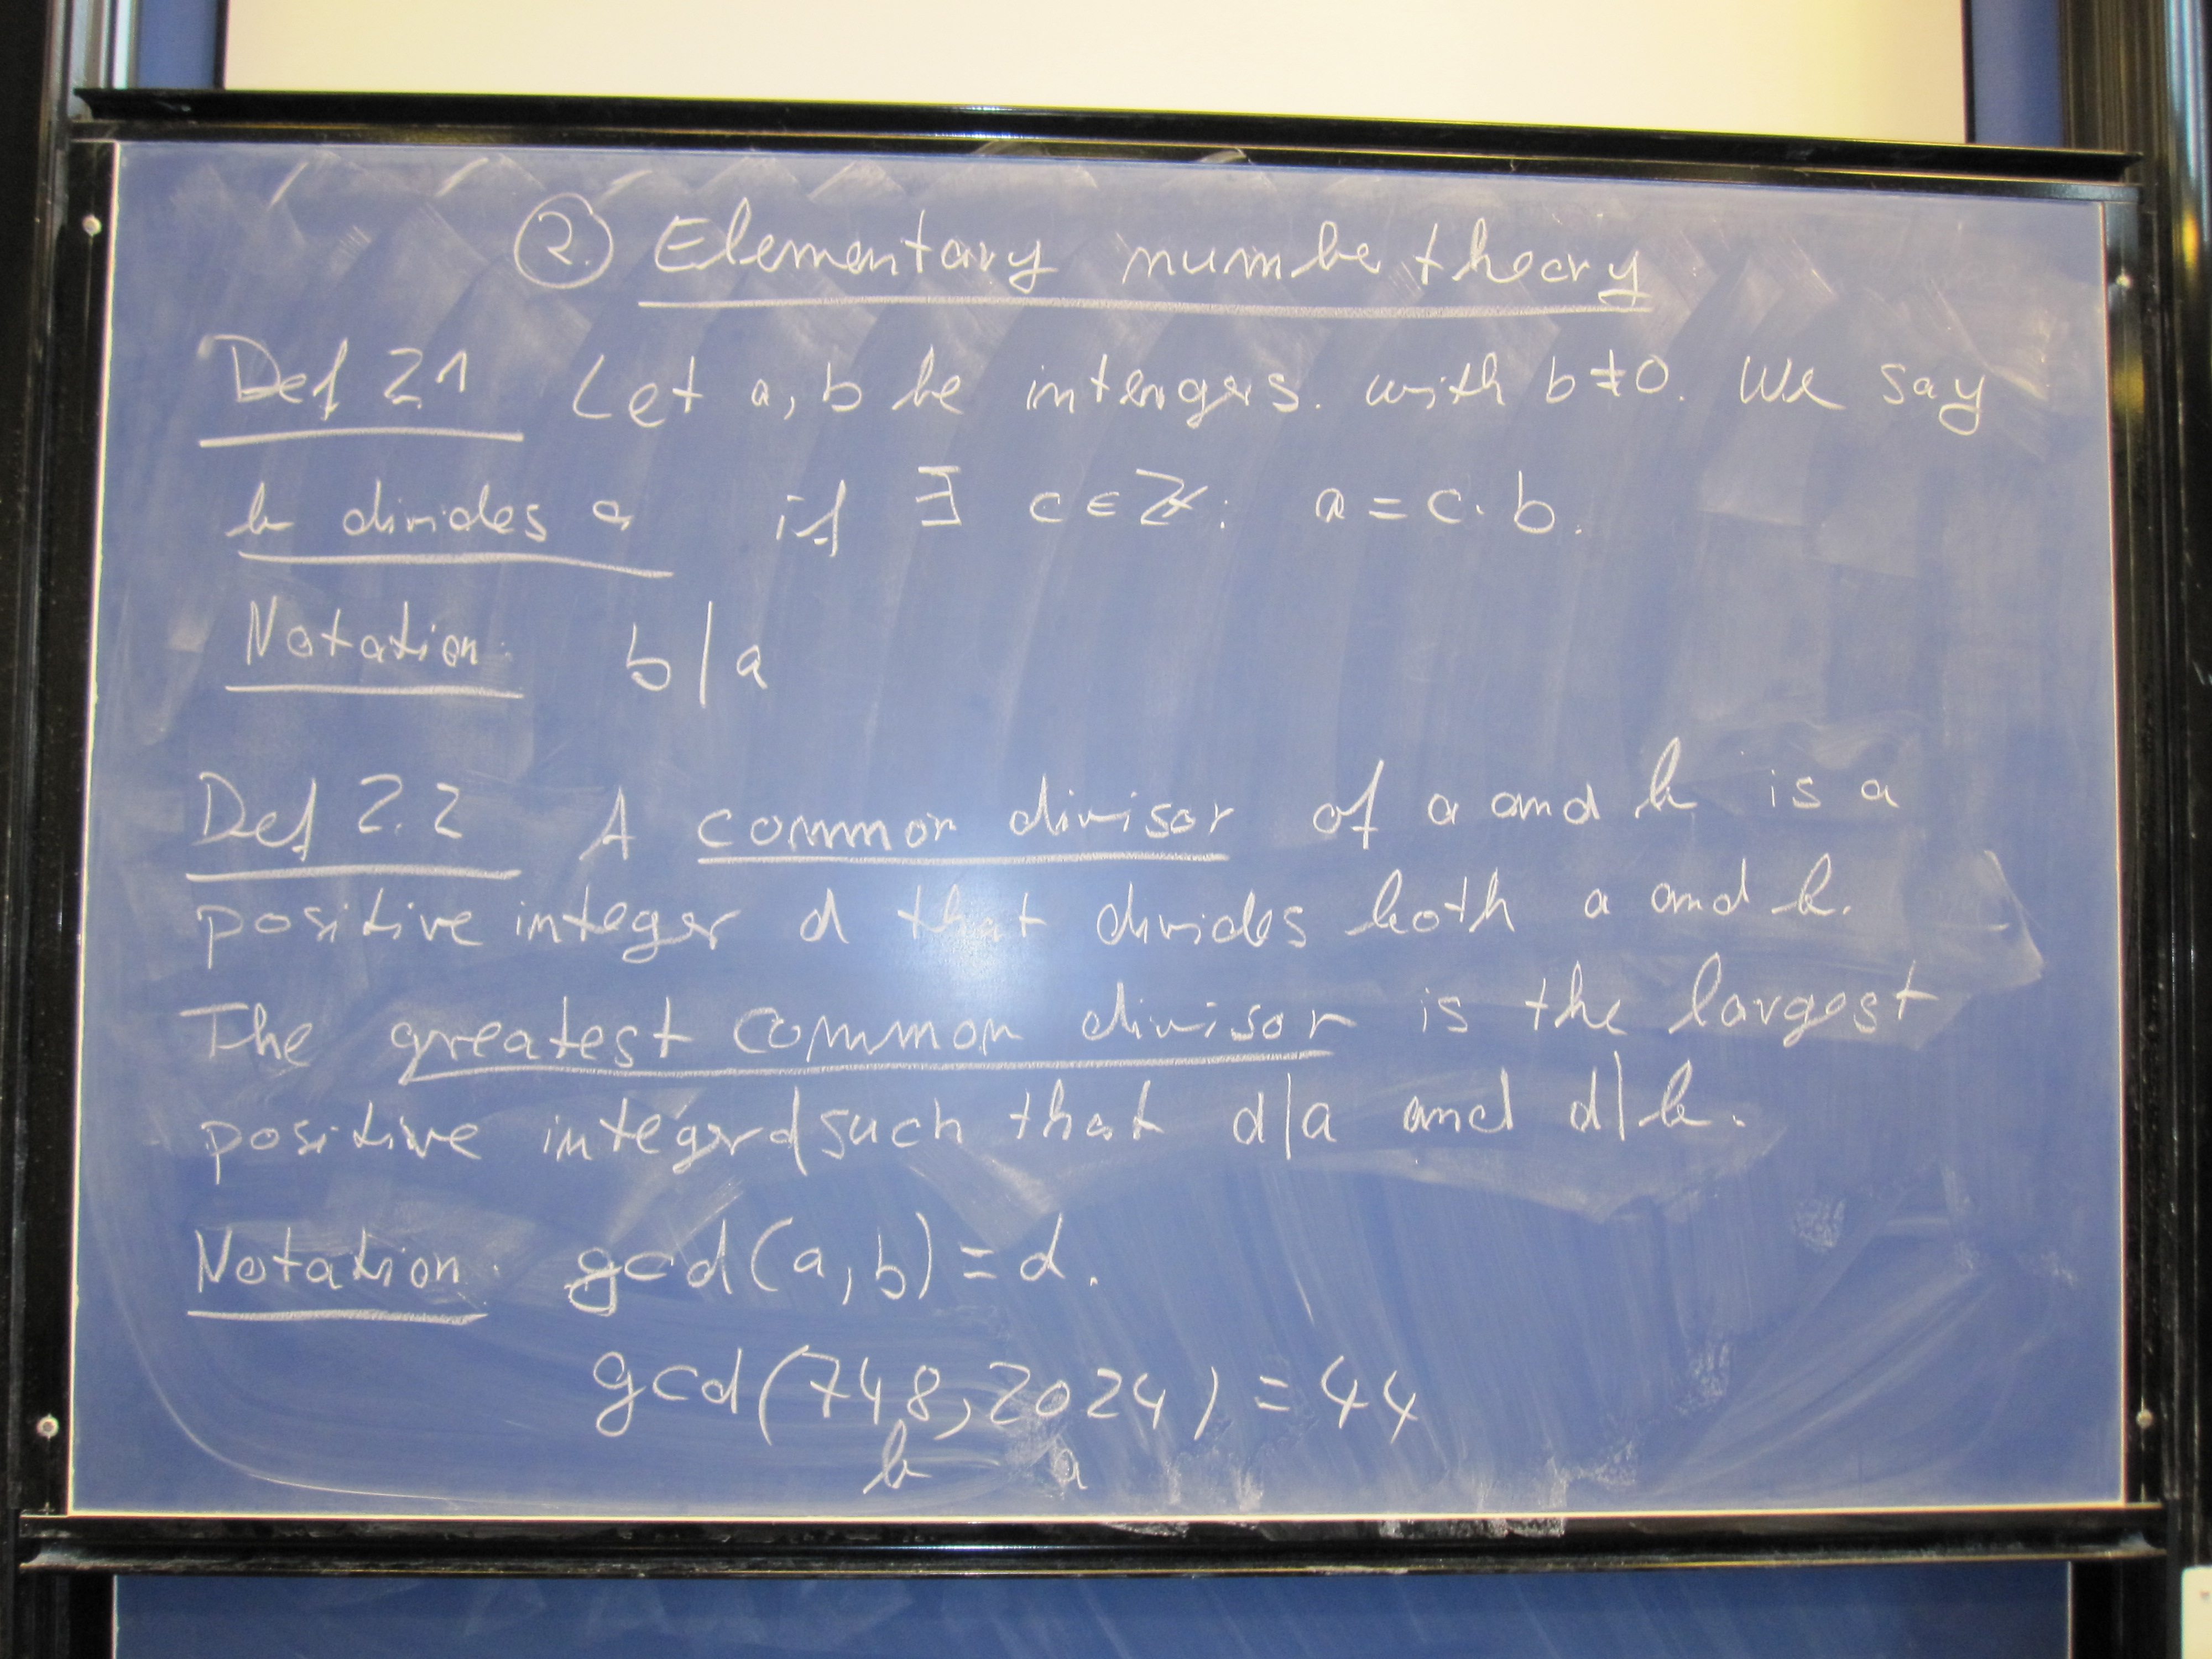 2. Elementary numbe theory
Def 2.1 Let a, b be intengers. with b≠0. We say
b divides a if ∃ c∈ℤ: a=c·b.
Notation: b|a
Def 2.2 A common divisor of a and b is a
positive integer d that divides both a and b.
The greatest common divisor is the largest
positive integer d such that d|a and d|b.
Notation: gcd(a,b)=d.
gcd(748,2024)=44
b a